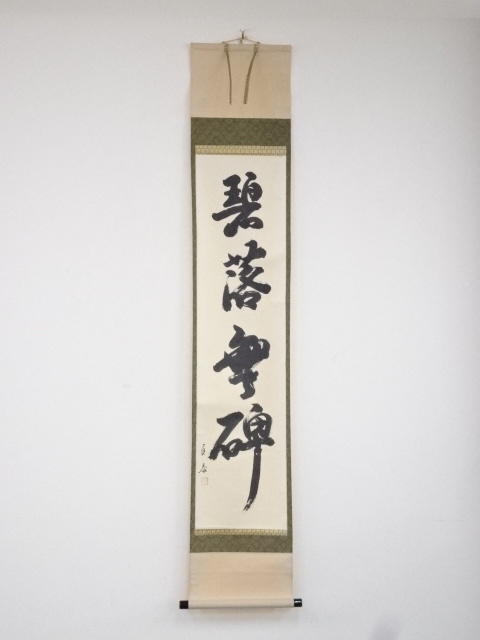 碧落無碑